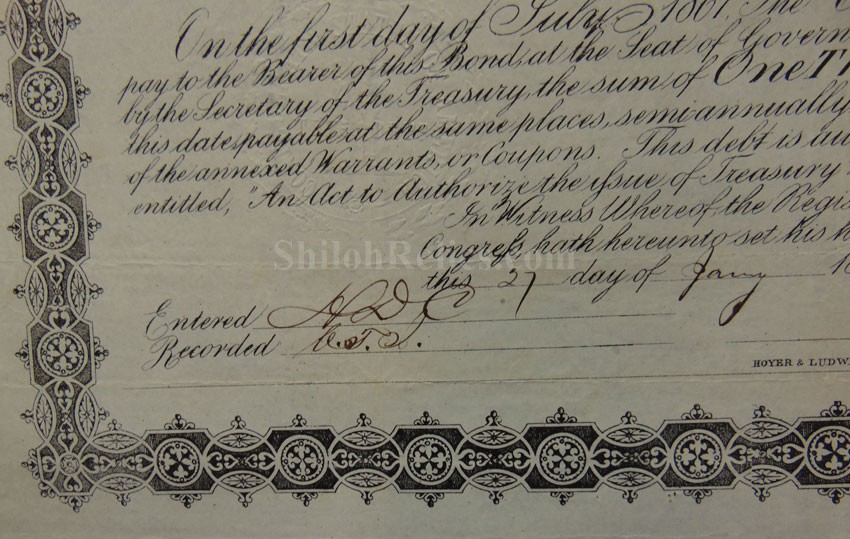 On the first day of July 1861. The
pay to the Bearer of this Bond, at the Seat of Govern
by the Secretary of the Treasury, the sum of One Th
this date, payable at the same places, semi-annually
of the annexed Warrants, or Coupons. This debt is au
entitled, "An Act to Authorize the issue of Treasury
In Witness Whereof the Regis
Congress hath hereunto set his h
ShilohRelics.com
this 27 day of Jany 18
Entered A D C
Recorded
HOYER & LUDW